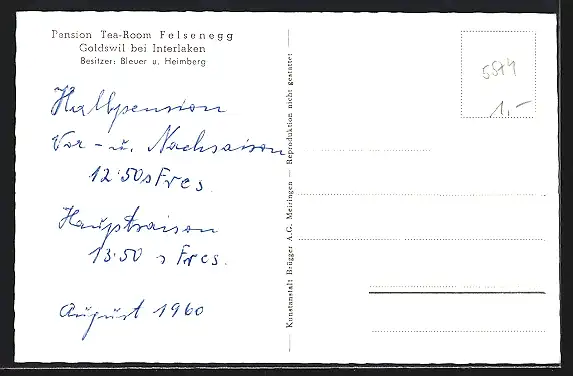 Pension Tea-Room Felsenegg
Goldswil bei Interlaken
Besitzer: Bleuer u. Heimberg
Halbpension
Vor- u. Nachsaison
12.50 s Frcs.
Hauptsaison
13.50 s Frcs.
August 1960
Kunstanstalt Brügger A.G. Meiringen — Reproduktion nicht gestattet
1.-